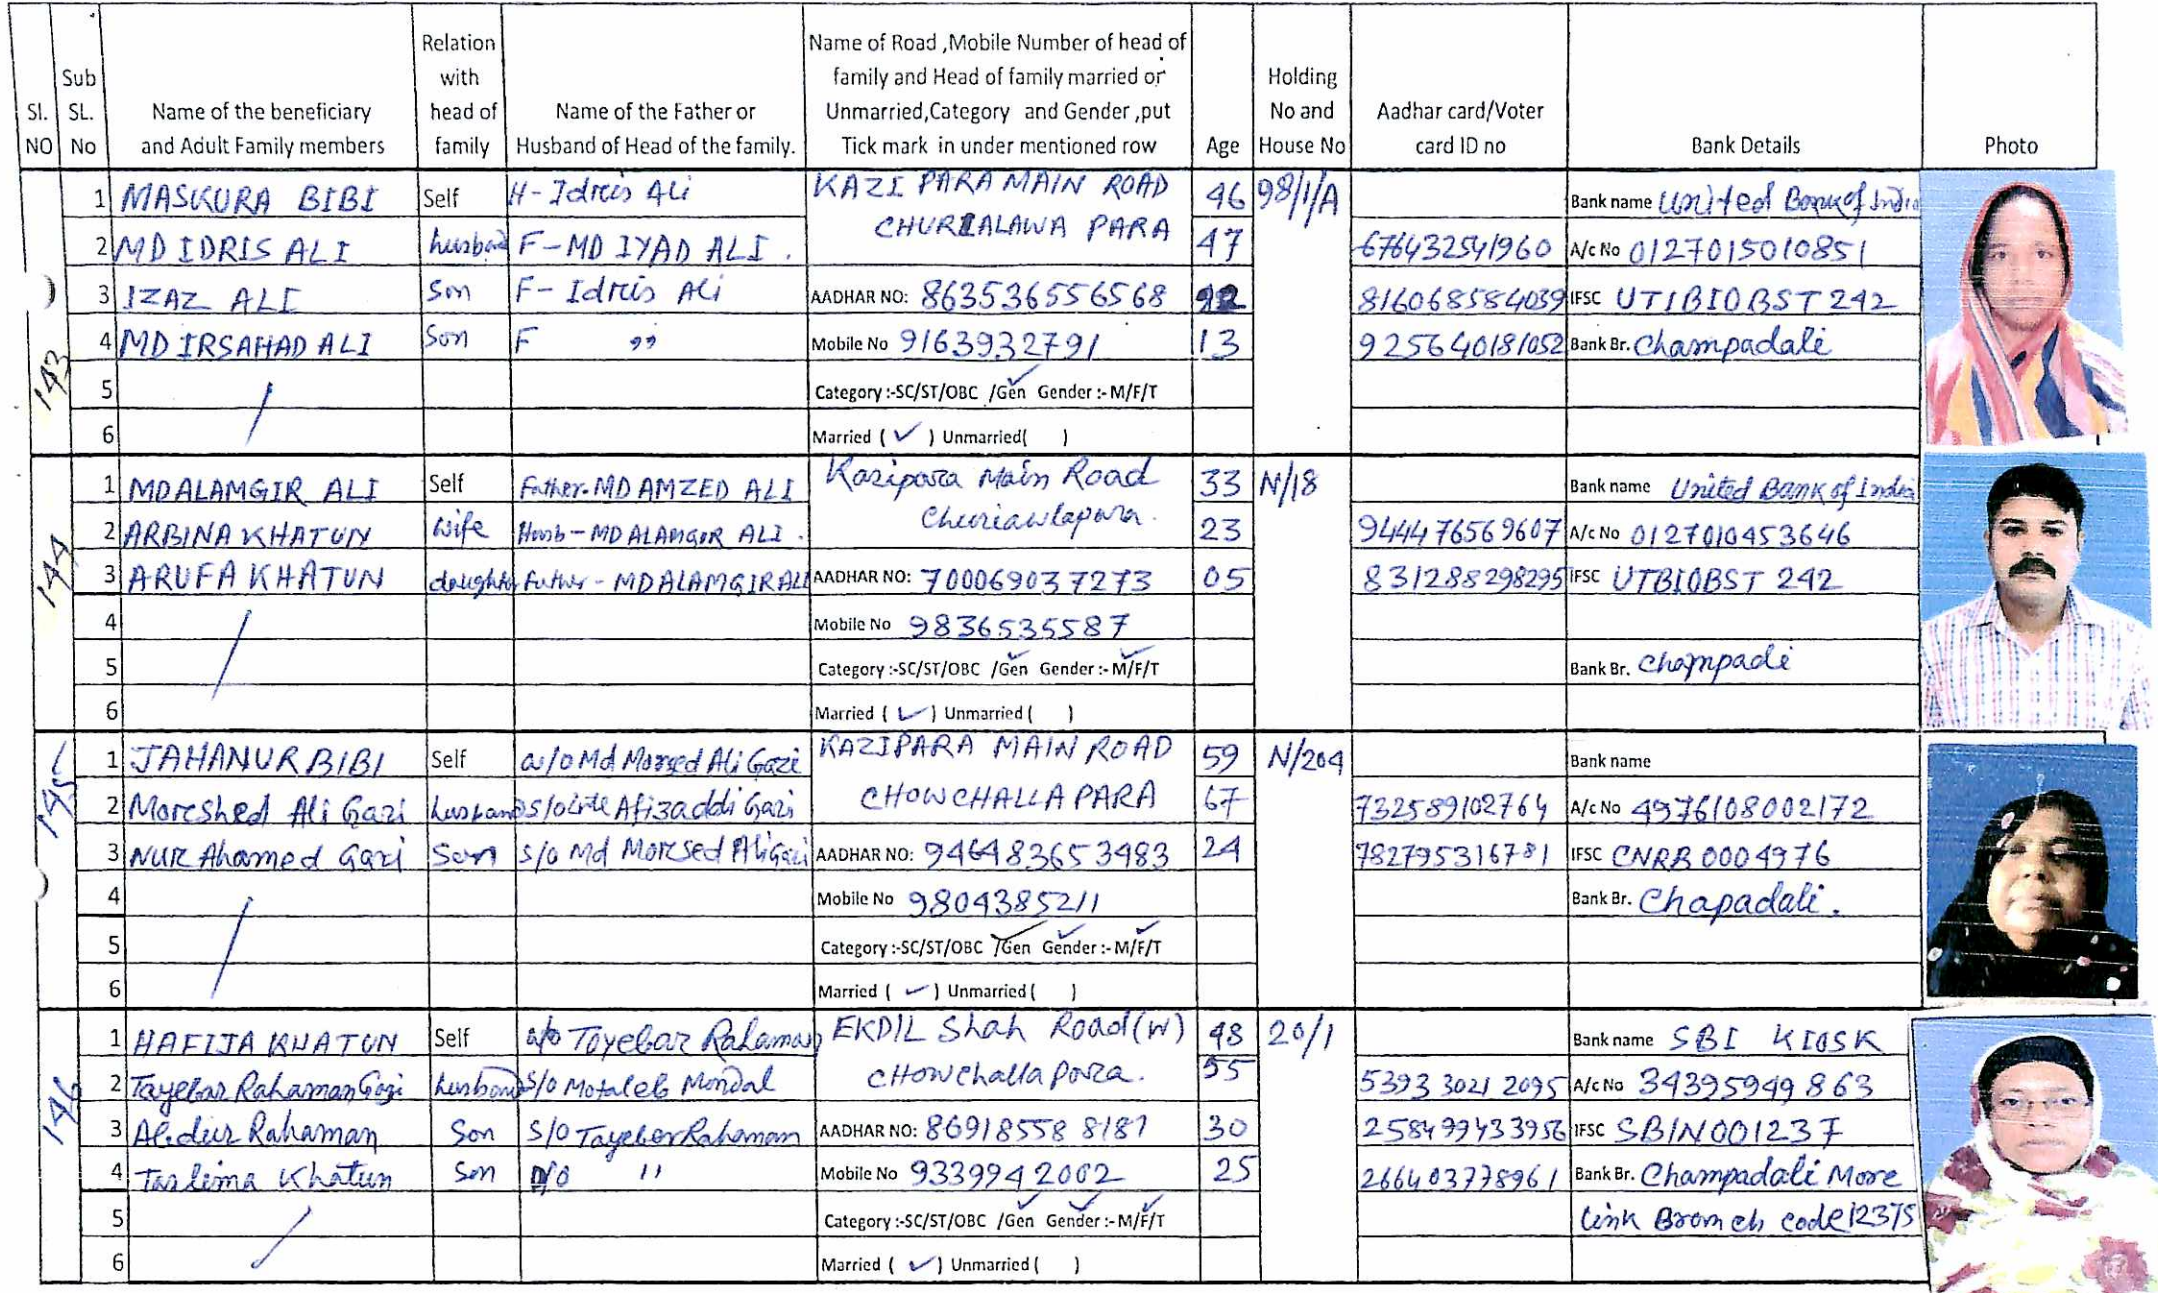 Sl. NO
Sub SL. No
Name of the beneficiary and Adult Family members
Relation with head of family
Name of the Father or Husband of Head of the family.
Name of Road ,Mobile Number of head of family and Head of family married or Unmarried,Category and Gender ,put Tick mark in under mentioned row
Age
Holding No and House No
Aadhar card/Voter card ID no
Bank Details
Photo
143
1 MASKURA BIBI Self H- Idris Ali KAZI PARA MAIN ROAD 46 98/1/A Bank name United Bank of India
2 MD IDRIS ALI husband F-MD IYAD ALI. CHURIALAWA PARA 47 676432541960 A/c No 0127015010851
3 IZAZ ALI Son F- Idris Ali AADHAR NO: 863536556568 816068584039 IFSC UTIBIOBST 242
4 MD IRSAHAD ALI Son F ,, Mobile No 9163932791 13 925640181052 Bank Br. Champadali
5 Category :-SC/ST/OBC /Gen Gender :- M/F/T
6 Married ( ✓ ) Unmarried( )
144
1 MD ALAMGIR ALI Self Father-MD AMZED ALI Kazipara Main Road 33 N/18 Bank name United Bank of India
2 ARBINA KHATUN Wife Husb-MD ALAMGIR ALI. Churiawlapara. 23 944476569607 A/c No 0127010453646
3 ARUFA KHATUN daughter Father-MD ALAMGIR ALI AADHAR NO: 700069037273 05 831288298295 IFSC UTBIOBST 242
4 Mobile No 9836535587
5 Category :-SC/ST/OBC /Gen Gender :- M/F/T Bank Br. Champadi
6 Married ( ✓ ) Unmarried ( )
145
1 JAHANUR BIBI Self w/o Md Morsed Ali Gazi KAZIPARA MAIN ROAD 59 N/204 Bank name
2 Morcshed Ali Gazi husband s/o Late Afizaddi Gazi CHOWCHALLA PARA 67 732589102764 A/c No 4976108002172
3 NUR Ahamed Gazi Son S/o Md Morsed Ali Gazi AADHAR NO: 946483653483 24 782795316781 IFSC CNRB 0004976
4 Mobile No 9804385211 Bank Br. Chapadali.
5 Category :-SC/ST/OBC /Gen Gender :- M/F/T
6 Married ( ✓ ) Unmarried ( )
146
1 HAFIJA KHATUN Self w/o Toyebar Rahaman EKDIL Shah Road(W) 48 20/1 Bank name SBI KIOSK
2 Tayebar Rahaman Gazi husband S/o Motaleb Mondal CHowchalla para. 55 5393 3021 2095 A/c No 34395949863
3 Abdur Rahaman Son S/O Tayeber Rahaman AADHAR NO: 86918558 8187 30 258499433956 IFSC SBIN001237
4 Taslima Khatun Son D/o ,, Mobile No 9339942002 25 266403778961 Bank Br. Champadali More
5 Category :-SC/ST/OBC /Gen Gender :- M/F/T Link Branch code 12375
6 Married ( ✓ ) Unmarried ( )